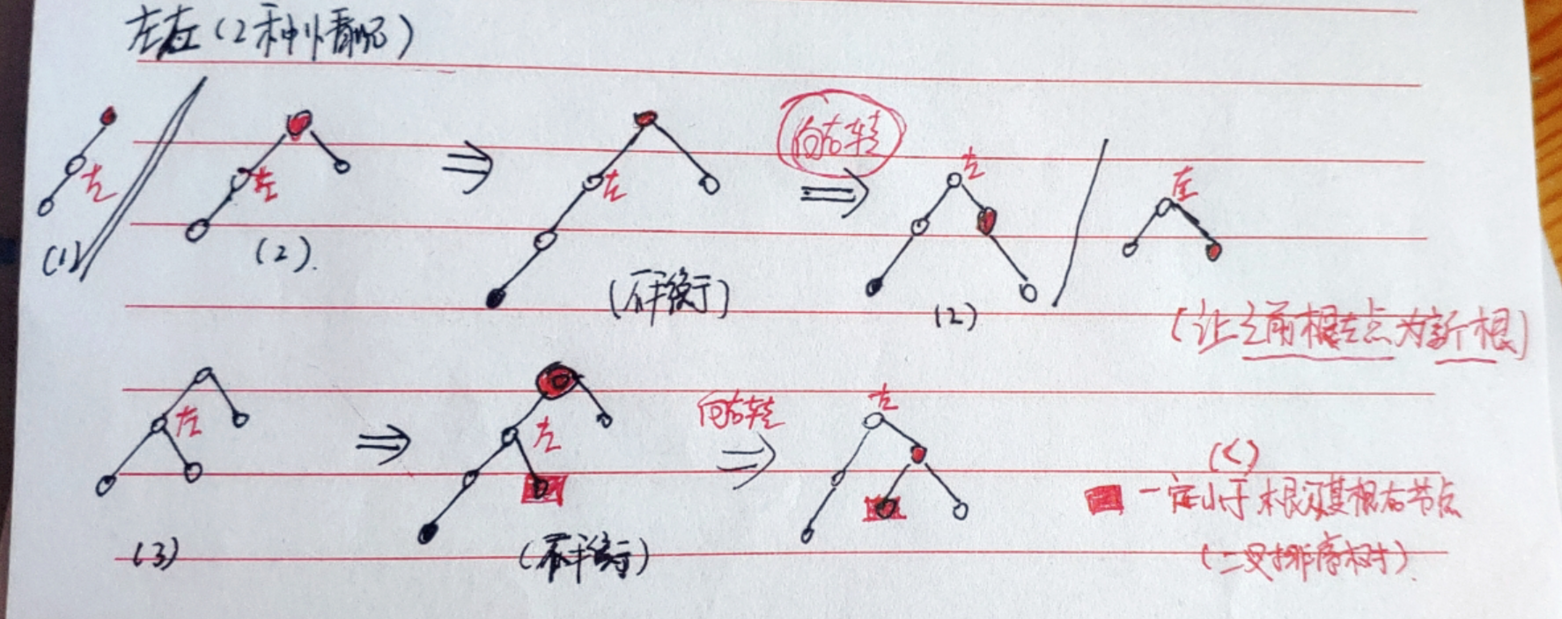 左左(2种情况)
向右转
左
左
左
左
左
(1)
(2).
(不平衡)
(2)
(让之前根左点为新根)
左
左
向右转
左
(<)
一定小于根及其根右节点
(3)
(不平衡)
(二叉排序树).